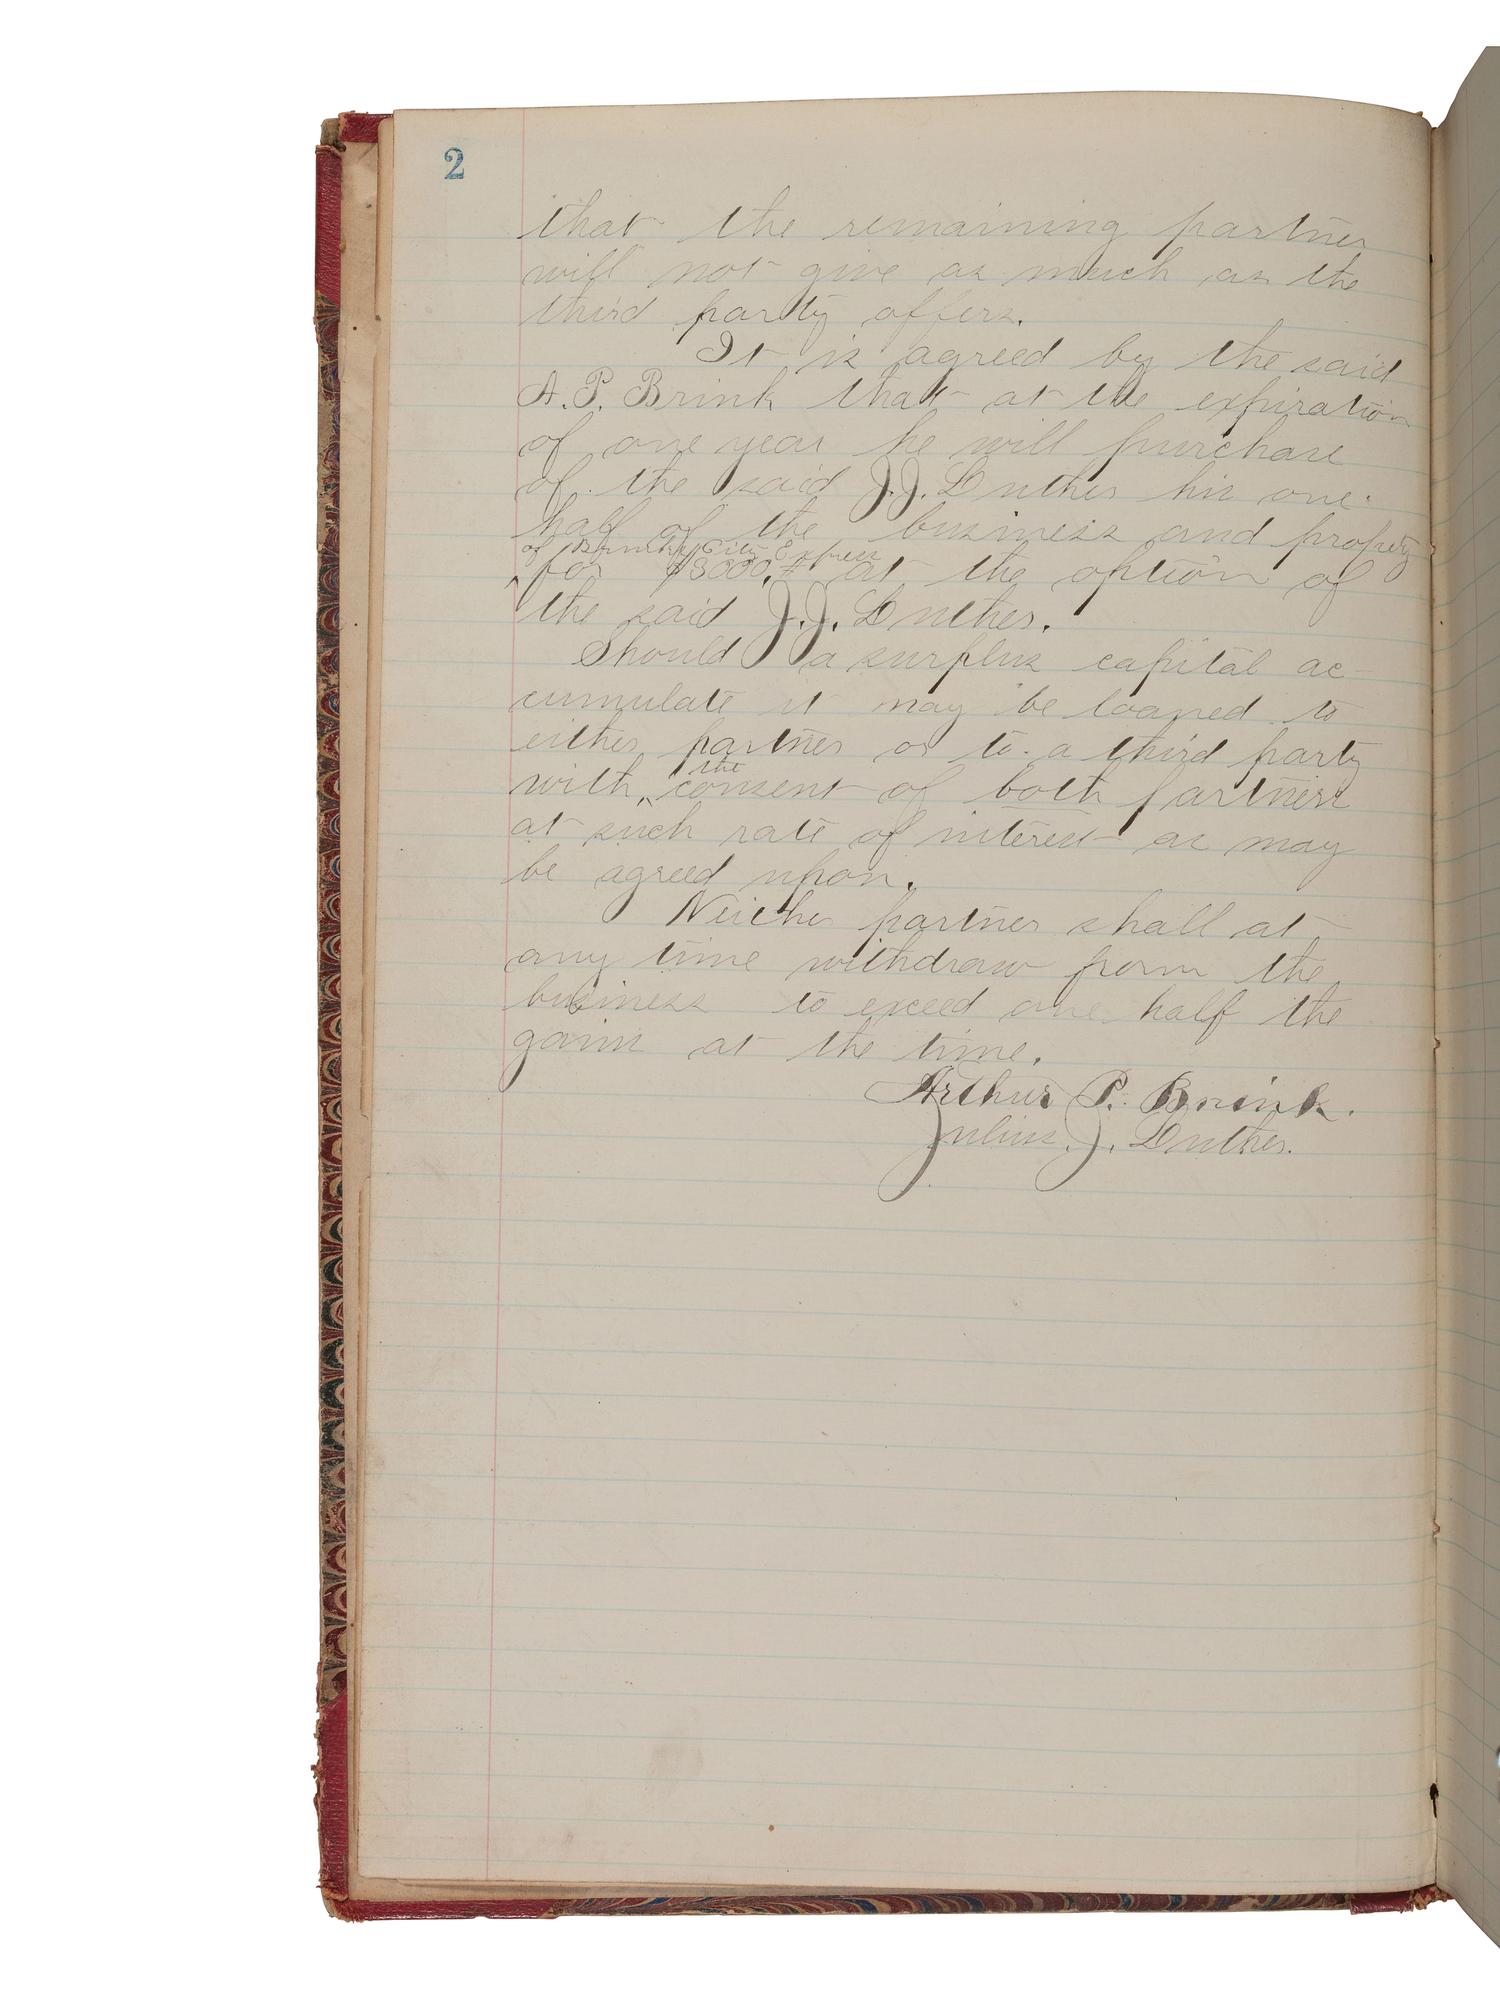 2
that the remaining partner
will not give as much as the
third party offers.
It is agreed by the said
A. P. Brink that at the expiration
of one year he will purchase
of the said J. J. Luther his one-
half of the business and property
of Brink's City Express
for $3000.# at the option of
the said J. J. Luther.
Should a surplus capital ac-
cumulate it may be loaned to
either partner or to a third party
the
with consent of both partners
at such rate of interest as may
be agreed upon.
Neither partner shall at
any time withdraw from the
business to exceed one half the
gains at the time.
Arthur P. Brink.
Julius J. Luther.